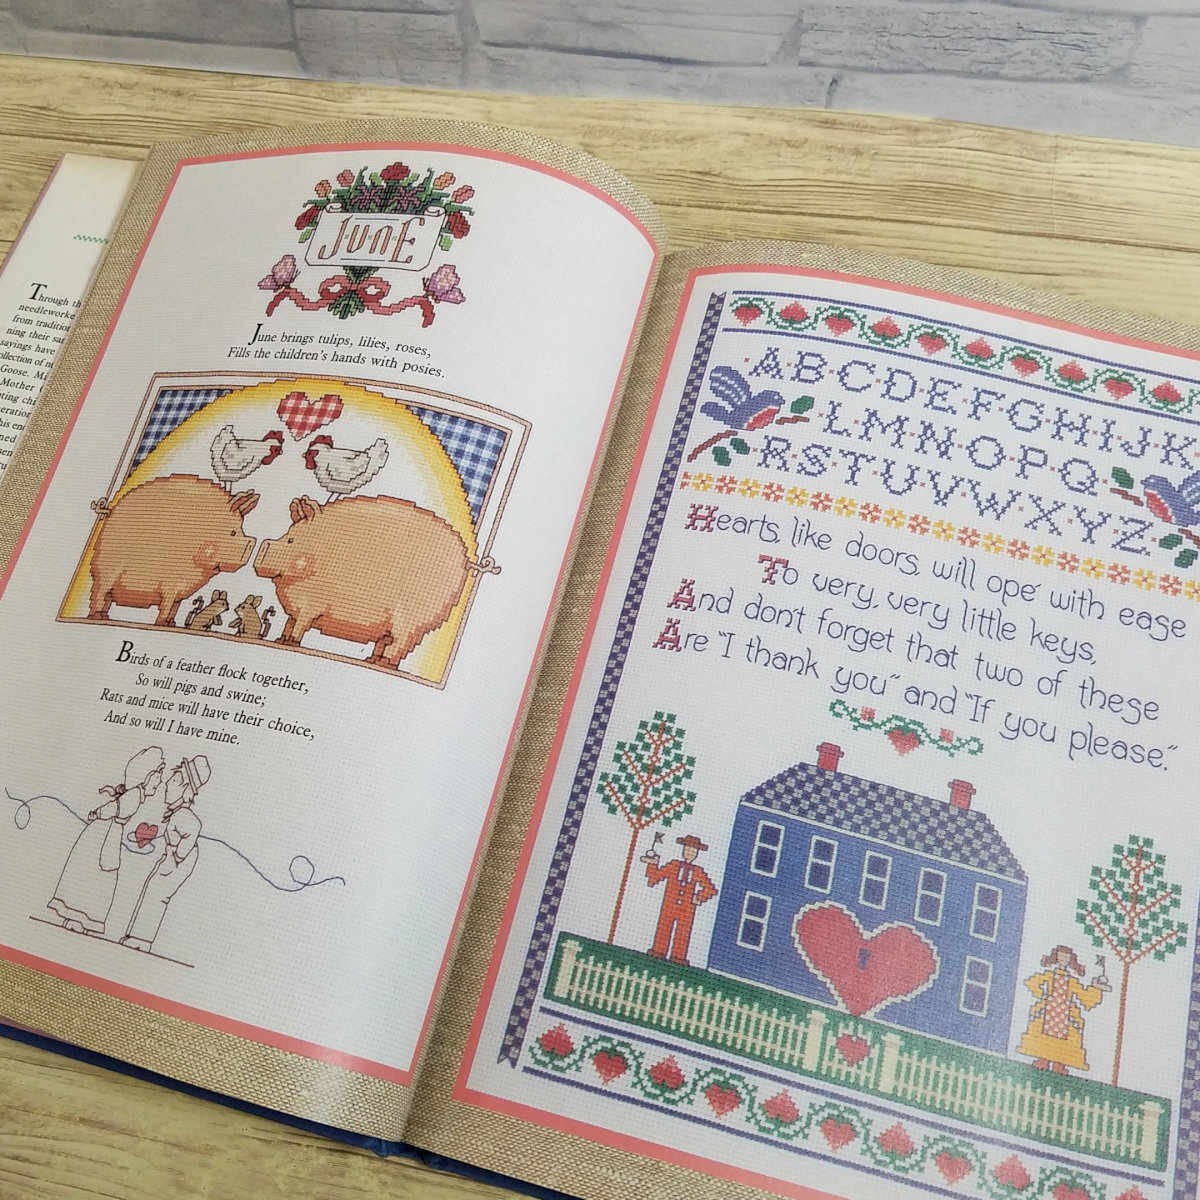 Through
needleworke
from tradition
ning their
sayings have
Goose.
Mother
June
June brings tulips, lilies, roses,
Fills the children's hands with posies.
Birds of a feather flock together,
So will pigs and swine;
Rats and mice will have their choice,
And so will I have mine.
ABCDEFGHIJK
LMNOPQ
RSTUVWXYZ
Hearts, like doors, will ope' with ease
To very, very little keys,
And don't forget that two of these
Are "I thank you" and "If you please."